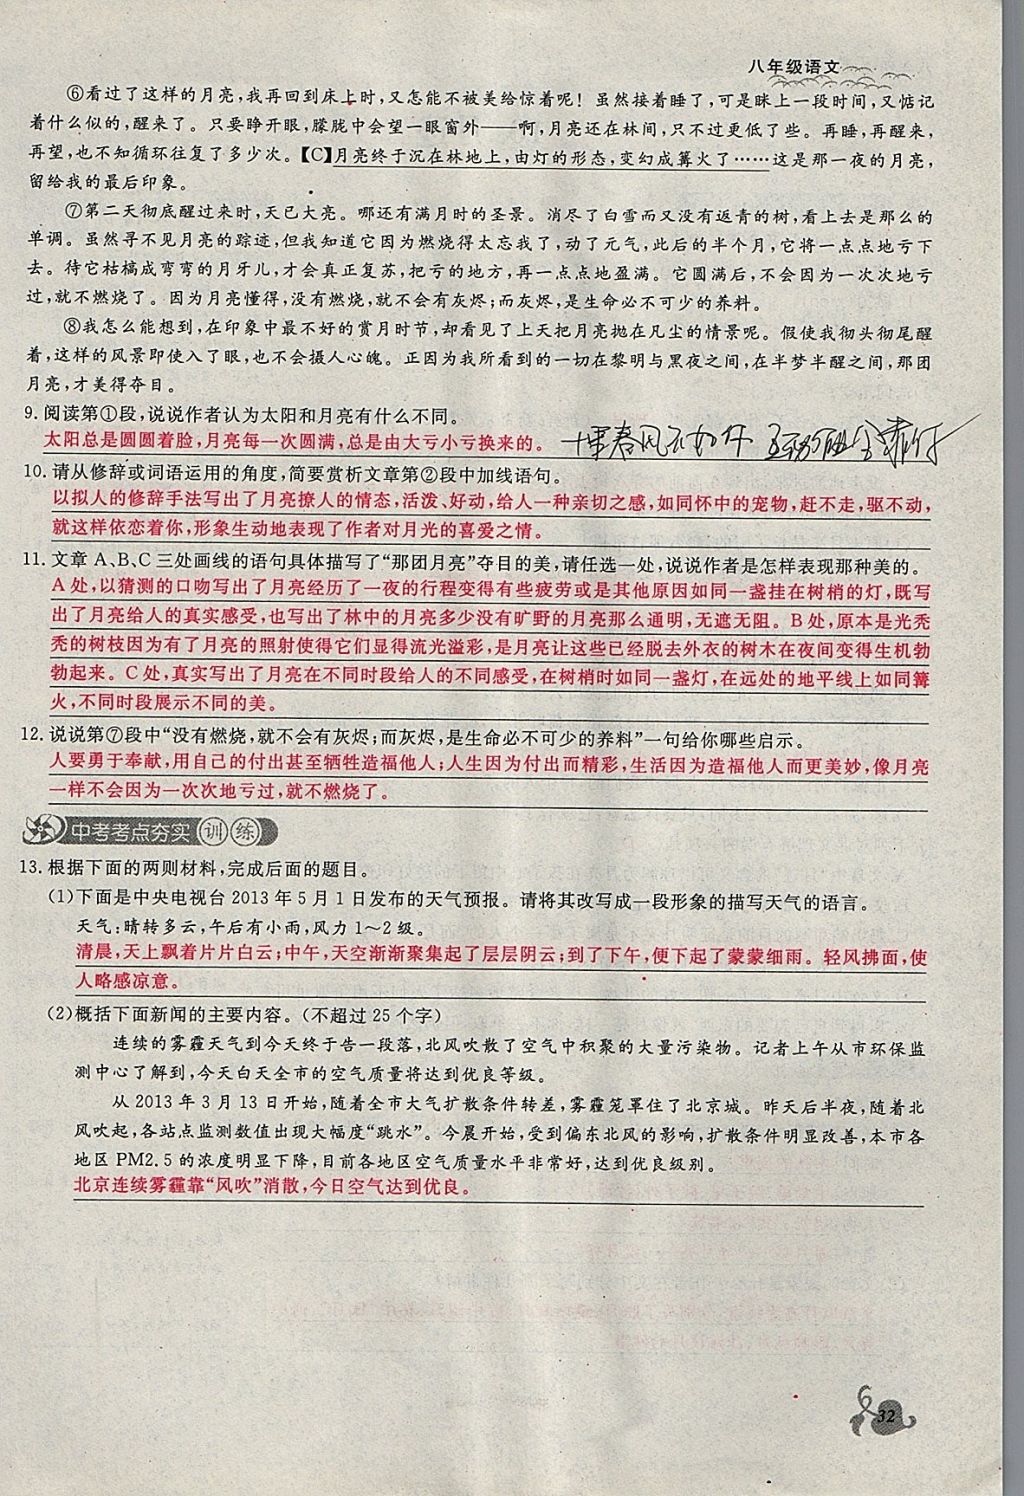 八年级语文
⑥看过了这样的月亮,我再回到床上时,又怎能不被美给惊着呢!虽然接着睡了,可是眯上一段时间,又惦记
着什么似的,醒来了。只要睁开眼,朦胧中会望一眼窗外——啊,月亮还在林间,只不过更低了些。再睡,再醒来,
再望,也不知循环往复了多少次。【C】月亮终于沉在林地上,由灯的形态,变幻成篝火了……这是那一夜的月亮,
留给我的最后印象。
⑦第二天彻底醒过来时,天已大亮。哪还有满月时的圣景。消尽了白雪而又没有返青的树,看上去是那么的
单调。虽然寻不见月亮的踪迹,但我知道它因为燃烧得太忘我了,动了元气,此后的半个月,它将一点点地亏下
去。待它枯槁成弯弯的月牙儿,才会真正复苏,把亏的地方,再一点点地盈满。它圆满后,不会因为一次次地亏
过,就不燃烧了。因为月亮懂得,没有燃烧,就不会有灰烬;而灰烬,是生命必不可少的养料。
⑧我怎么能想到,在印象中最不好的赏月时节,却看见了上天把月亮抛在凡尘的情景呢。假使我彻头彻尾醒
着,这样的风景即使入了眼,也不会摄人心魄。正因为我所看到的一切在黎明与黑夜之间,在半梦半醒之间,那团
月亮,才美得夺目。
9. 阅读第①段,说说作者认为太阳和月亮有什么不同。
太阳总是圆圆着脸,月亮每一次圆满,总是由大亏小亏换来的。
10. 请从修辞或词语运用的角度,简要赏析文章第②段中加线语句。
以拟人的修辞手法写出了月亮撩人的情态,活泼、好动,给人一种亲切之感,如同怀中的宠物,赶不走,驱不动,
就这样依恋着你,形象生动地表现了作者对月光的喜爱之情。
11. 文章 A、B、C 三处画线的语句具体描写了“那团月亮”夺目的美,请任选一处,说说作者是怎样表现那种美的。
A 处,以猜测的口吻写出了月亮经历了一夜的行程变得有些疲劳或是其他原因如同一盏挂在树梢的灯,既写
出了月亮给人的真实感受,也写出了林中的月亮多少没有旷野的月亮那么通明,无遮无阻。B 处,原本是光秃
秃的树枝因为有了月亮的照射使得它们显得流光溢彩,是月亮让这些已经脱去外衣的树木在夜间变得生机勃
勃起来。C 处,真实写出了月亮在不同时段给人的不同感受,在树梢时如同一盏灯,在远处的地平线上如同篝
火,不同时段展示不同的美。
12. 说说第⑦段中“没有燃烧,就不会有灰烬;而灰烬,是生命必不可少的养料”一句给你哪些启示。
人要勇于奉献,用自己的付出甚至牺牲造福他人;人生因为付出而精彩,生活因为造福他人而更美妙,像月亮
一样不会因为一次次地亏过,就不燃烧了。
中考考点夯实训练
13. 根据下面的两则材料,完成后面的题目。
(1)下面是中央电视台 2013 年 5 月 1 日发布的天气预报。请将其改写成一段形象的描写天气的语言。
天气:晴转多云,午后有小雨,风力 1~2 级。
清晨,天上飘着片片白云;中午,天空渐渐聚集起了层层阴云;到了下午,便下起了蒙蒙细雨。轻风拂面,使
人略感凉意。
(2)概括下面新闻的主要内容。(不超过 25 个字)
连续的雾霾天气到今天终于告一段落,北风吹散了空气中积聚的大量污染物。记者上午从市环保监
测中心了解到,今天白天全市的空气质量将达到优良等级。
从 2013 年 3 月 13 日开始,随着全市大气扩散条件转差,雾霾笼罩住了北京城。昨天后半夜,随着北
风吹起,各站点监测数值出现大幅度“跳水”。今晨开始,受到偏东北风的影响,扩散条件明显改善,本市各
地区 PM2.5 的浓度明显下降,目前各地区空气质量水平非常好,达到优良级别。
北京连续雾霾靠“风吹”消散,今日空气达到优良。
32